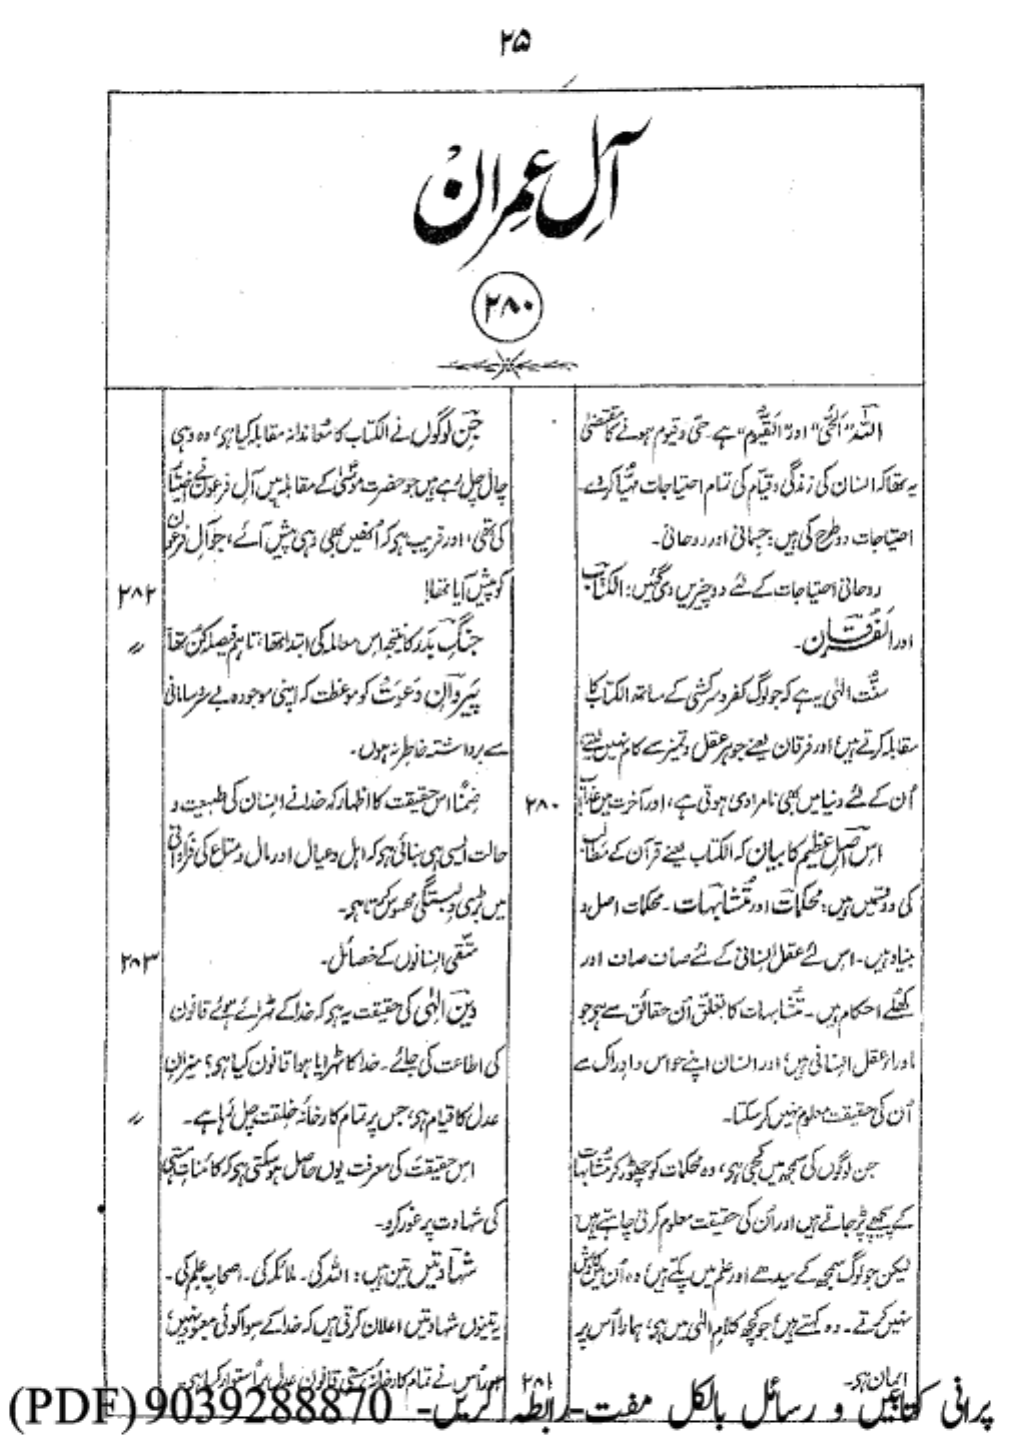 ۲۵
آلِ عمران
۲۸۰
اللہ "اَلحَیّ" اور "اَلقَیُّوم" ہے۔ حیّ و قیوم ہونے کا مقتضٰی
یہ تھا کہ انسان کی زندگی و قیام کی تمام احتیاجات مہیّا کر دے۔
احتیاجات دو طرح کی ہیں: جسمانی اور روحانی۔
روحانی احتیاجات کے لئے دو چیزیں دی گئیں: الکتاب
اور الفرقان۔
سنّت الٰہی یہ ہے کہ جو لوگ کفر و سرکشی کے ساتھ الکتاب کا
مقابلہ کرتے ہیں، اور فرقان یعنے جوہر عقل و تمیز سے کام نہیں لیتے
اُن کے لئے دنیا میں بھی نامرادی ہوتی ہے، اور آخرت میں عذاب ۲۸۰
اس اصلِ عظیم کا بیان کہ الکتاب یعنے قرآن کے مطالب
کی دو قسمیں ہیں: محکمات اور متشابہات۔ محکمات اصل و
بنیاد ہیں۔ اس لئے عقل انسانی کے لئے صاف صاف اور
کھُلے احکام ہیں۔ متشابہات کا تعلق اُن حقائق سے ہے جو
ماوراءِ عقل انسانی ہیں، اور انسان اپنے حواس و ادراک سے
اُن کی حقیقت معلوم نہیں کر سکتا۔
جن لوگوں کی سمجھ میں کجی ہی، وہ محکمات کو چھوڑ کر متشابہات
کے پیچھے پڑ جاتے ہیں اور اُن کی حقیقت معلوم کرنی چاہتے ہیں
لیکن جو لوگ سمجھ کے سیدھے اور علم میں پکے ہیں، وہ اُن میں کاوش
نہیں کرتے۔ وہ کہتے ہیں، جو کچھ کلام الٰہی میں ہی، ہمارا اُس پر
ایمان ہی۔ ۲۸۱
جن لوگوں نے الکتاب کا معاندانہ مقابلہ کیا ہی، وہ وہی
چال چل رہے ہیں جو حضرت موسٰی کے مقابلہ میں آلِ فرعون نے اختیار
کی تھی، اور قریب ہی کہ اُنھیں بھی وہی پیش آئے، جو آل فرعون
کو پیش آیا تھا! ۲۸۲
جنگِ بدر کا نتیجہ اس معاملہ کی ابتدا تھا، تاہم فیصلہ کُن تھا ۔ ״
پیروانِ دعوت کو موعظت کہ اپنی موجودہ بے سروسامانی
سے برداشتہ خاطر نہ ہوں۔
ضمناً اس حقیقت کا اظہار کہ خدا نے انسان کی طبیعت و
حالت ایسی ہی بنائی ہی کہ اہل و عیال اور مال و متاع کی فراوانی
میں بڑی دلبستگی محسوس کرتا ہی۔
متّقی انسانوں کے خصائل۔ ۲۸۳
دین الٰہی کی حقیقت یہ ہی کہ خدا کے ٹھرائے ہوئے قانون
کی اطاعت کی جائے۔ خدا کا ٹھرایا ہوا قانون کیا ہی؟ میزانِ
عدل کا قیام ہی، جس پر تمام کارخانۂ خلقت چل رہا ہے۔ ״
اس حقیقت کی معرفت یوں حاصل ہو سکتی ہی کہ کائنات ہستی
کی شہادت پر غور کرو۔
شہادتیں تین ہیں: اللہ کی۔ ملائکہ کی۔ اصحاب علم کی۔
یہ تینوں شہادتیں اعلان کرتی ہیں کہ خدا کے سوا کوئی معبود نہیں،
اور اُس نے تمام کارخانۂ ہستی قانون عدل پر استوار کیا ہی۔
پرانی کتابیں و رسائل بالکل مفت۔رابطہ کریں۔ 9039288870 (PDF)